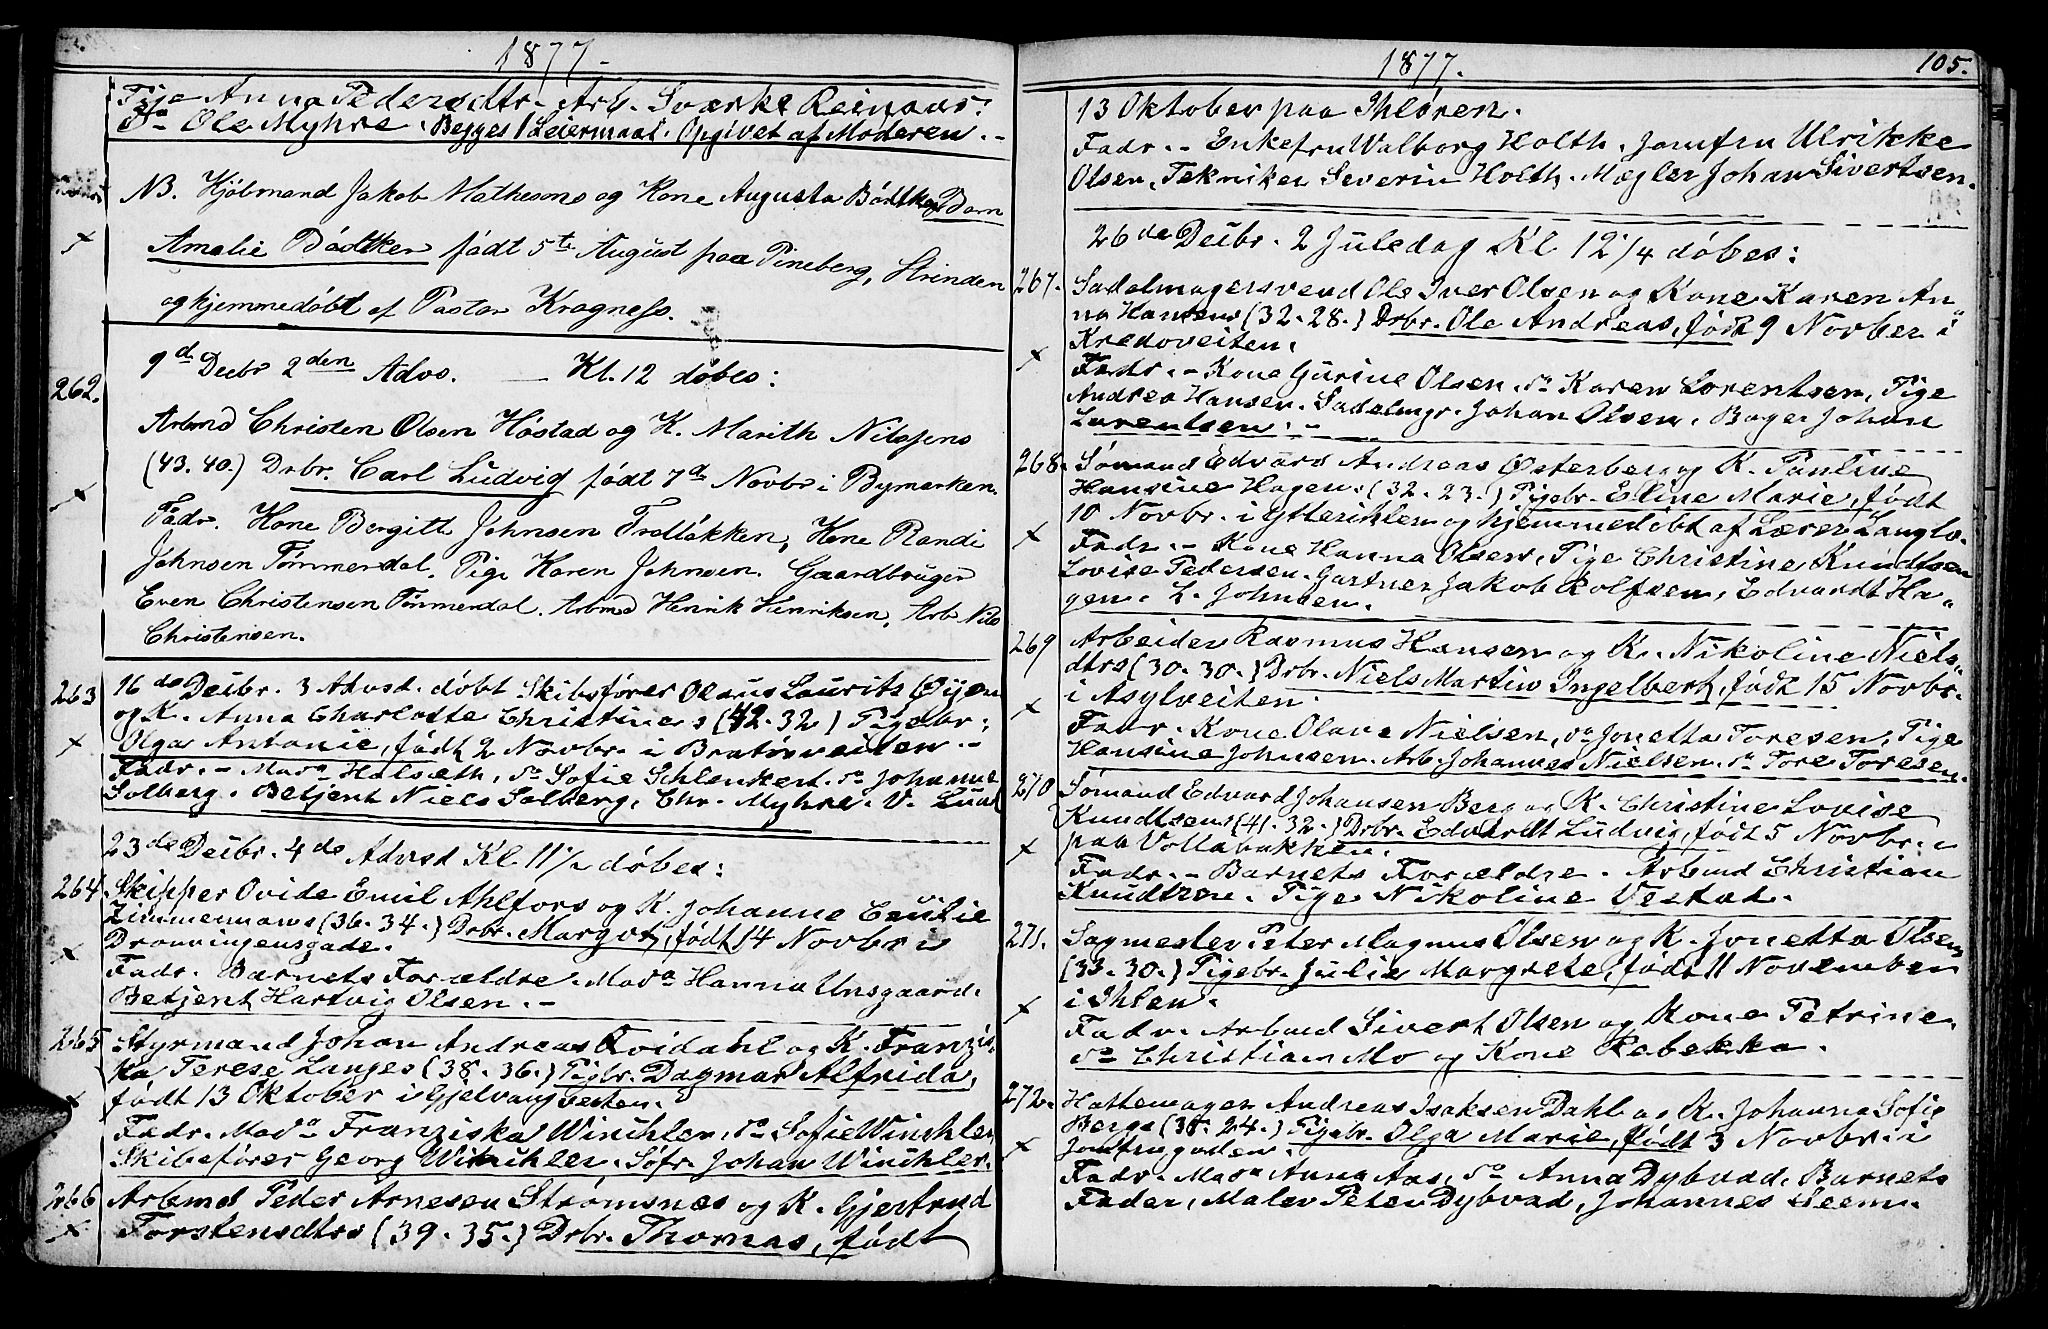 1877.
Pige Anna Pedersdtr. Arb. Sverke Reinaas.
do Ole Myhre. Begges 1 Leiermaal. Opgivet af Moderen.
NB. Kjøbmand Jakob Mathesons og Kone Augusta Bødtkers Barn
Amalie Bødtker født 5te August paa Pineberg, Strinden
og hjemmedøbt af Pastor Kragness.
9d Decbr 2den Advs. — Kl. 12 døbes:
262.
Arbmd Christen Olsen Høstad og K. Marith Nilssens
(43. 40.) Drbr. Carl Ludvig født 7d Novbr i Bymarken.
Fadr. Kone Bergitt Johnsen Trolløkken, Kone Randi
Johnsen Tømmerdal, Pige Karen Johnsen. Gaardbruger
Even Christensen Tømmerdal. Arbmd Henrik Henriksen, Arb. Nils
Christensen.
263 16de Decbr. 3 Advst. døbt Skibsfører Olaus Laurits Øyen
og K. Anna Charlotte Christines (42. 32) Pigebr:
Olga Antonie, født 2 Novbr. i Bratørveiten.
Fadr. – Mada Halseth, do Sofie Schlenkert. do Johanne
Solberg. Betjent Niels Solberg, Chr. Myhre. V. Lund
23de Decbr. 4de Advst Kl 11 1/2 døbes:
264. Skipper Ovide Emil Ahlfors og K. Johanne Cecilie
Zimmermanns (36. 34.) Drbr. Margot, født 14 Novbr i
Dronningensgade.
Fadr. Barnets Forældre. Mada Hanna Unsgaard.
Betjent Hartvig Olsen. –
265 Styrmand Johan Andreas Qvidahl og K. Franzis-
ka Terese Langes (38. 36.) Pigbr. Dagmar Alfrida,
født 13 Oktober i Gjelvangveiten.
Fadr. Mada Franziska Winchler, do Sofie Winchler,
Skibsfører Georg Winchler. Søfr. Johan Winchler.
266 Arbmd Peder Arnesen Strømsnes og K. Gjertrud
Torstensdtrs (39. 35.) Drbr. Thomas, født
1877. 105.
13 Oktober paa Ihløren.
Fadr. – Enkefru Walborg Holth. Jomfru Ulrikke
Olsen, Tekniker Severin Holth. Mægler Johan Sivertsen.
26de Decbr. 2 Juledag Kl 12 1/4 døbes:
267. Sadelmagersvend Ole Iver Olsen og Kone Karen An-
na Hansens (32. 28.) Drbr. Ole Andreas, født 9 Novber i
Kredoveiten.
Fadr. – Kone Gurine Olsen. do Karen Lorentsen, Pige
Andrea Hansen. Sadelmgr. Johan Olsen. Bager Johan
Lorentsen. –
268. Sømand Edvard Andreas Østerberg og K. Pauline
Hansine Hagens (32. 23.) Pigebr. Eline Marie, født
10 Novbr. i Ytterihlen og hjemmedøbt af Lærer Langlo.
Fadr. – Kone Hanna Olsen, Pige Christine Knudtsen
Lovise Pedersen. Gartner Jakob Rolfsen, Edvardt Ha-
gen. L. Johnsen.
269 Arbeider Rasmus Hansen og K. Nikoline Niels-
dtrs (30. 30.) Drbr. Niels Martin Ingelbert, født 15 Novbr.
i Asylveiten.
Fadr. Kone Olava Nielsen, do Jonetta Toresen, Pige
Hansine Johnsen. Arb. Johannes Nielsen. do Tore Toresen.
270 Sømand Edvard Johansen Berg og K. Christine Lovise
Knudtsens (41. 32.) Drbr. Edvardt Ludvig, født 5 Novbr. –
paa Vollabakken.
Fadr. – Barnets Forældre. Arbmd Christian
Knudtsen. Pige Nikoline Vestad.
271. Sagmester Peter Magnus Olsen og K. Jonetta Olsens
(33. 30.) Pigebr. Julie Margrete, født 11 November
i Ihlen.
Fadr. Arbmd Sivert Olsen og Kone Petrine,
do Christian Mo og Kone Rebekka.
272. Hattemager Andreas Isaksen Dahl og K. Johanna Sofie
Bergs (38. 24.) Pigebr. Olga Marie, født 3 Novbr. i
Jomfrugaden.
Fadr. Mada Anna Aas, do Anna Dybvad. Barnets
Fader, Maler Peter Dybvad, Johannes Leem.